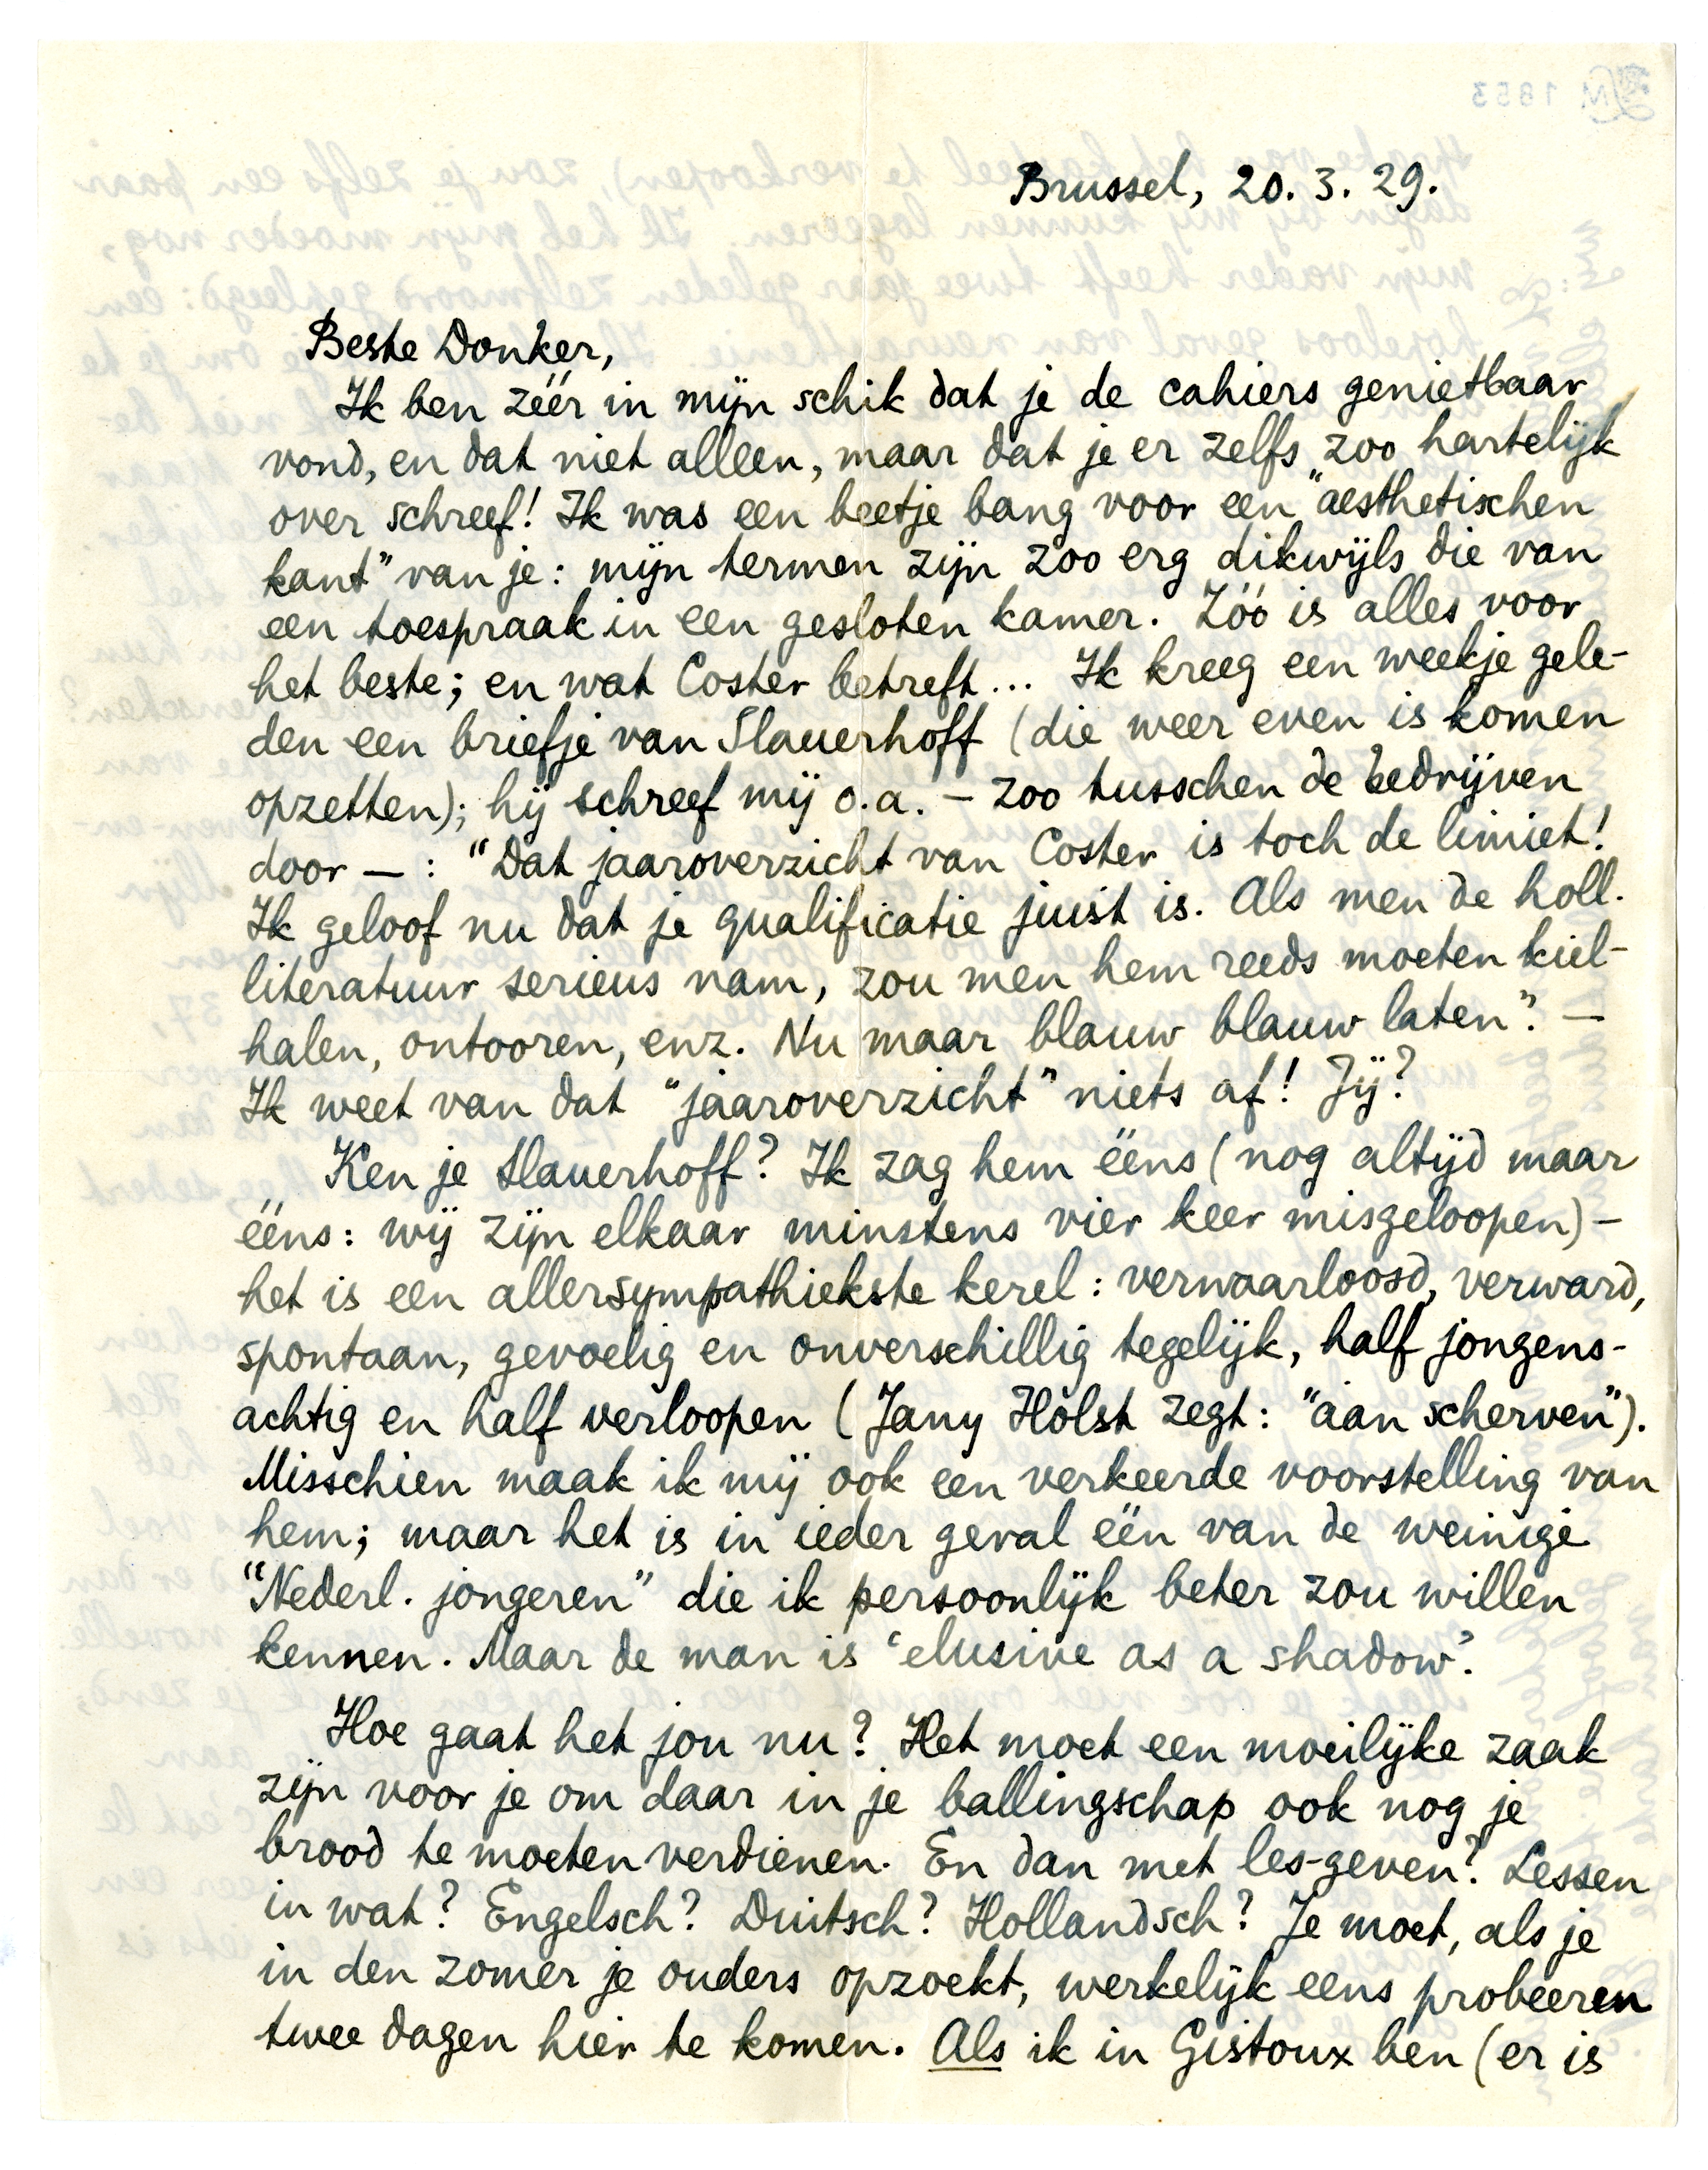 Brussel, 20. 3. 29.
Beste Donker,
Ik ben zéér in mijn schik dat je de cahiers genietbaar
vond, en dat niet alleen, maar dat je er zelfs zoo hartelijk
over schreef! Ik was een beetje bang voor een "aesthetischen
kant" van je: mijn termen zijn zoo erg dikwijls die van
een toespraak in een gesloten kamer. Zóó is alles voor
het beste; en wat Coster betreft... Ik kreeg een weekje gele-
den een briefje van Slauerhoff (die weer even is komen
opzetten); hij schreef mij o.a. – zoo tusschen de bedrijven
door – : "Dat jaaroverzicht van Coster is toch de limiet!
Ik geloof nu dat je qualificatie juist is. Als men de holl.
literatuur serieus nam, zou men hem reeds moeten kiel-
halen, ontooren, enz. Nu maar blauw blauw laten". –
Ik weet van dat "jaaroverzicht" niets af! Jij?
Ken je Slauerhoff? Ik zag hem ééns (nog altijd maar
ééns: wij zijn elkaar minstens vier keer misgeloopen) –
het is een allersympathiekste kerel: verwaarloosd, verward,
spontaan, gevoelig en onverschillig tegelijk, half jongens-
achtig en half verloopen (Jany Holst zegt: "áán scherven").
Misschien maak ik mij ook een verkeerde voorstelling van
hem; maar het is in ieder geval één van de weinige
"Nederl. jongeren" die ik persoonlijk beter zou willen
kennen. Maar de man is 'elusive as a shadow'.
Hoe gaat het jou nu? Het moet een moeilijke zaak
zijn voor je om daar in je ballingschap ook nog je
brood te moeten verdienen. En dan met les-geven? Lessen
in wat? Engelsch? Duitsch? Hollandsch? Je moet, als je
in den zomer je ouders opzoekt, werkelijk eens probeeren
twee dagen hier te komen. Als ik in Gistoux ben (er is